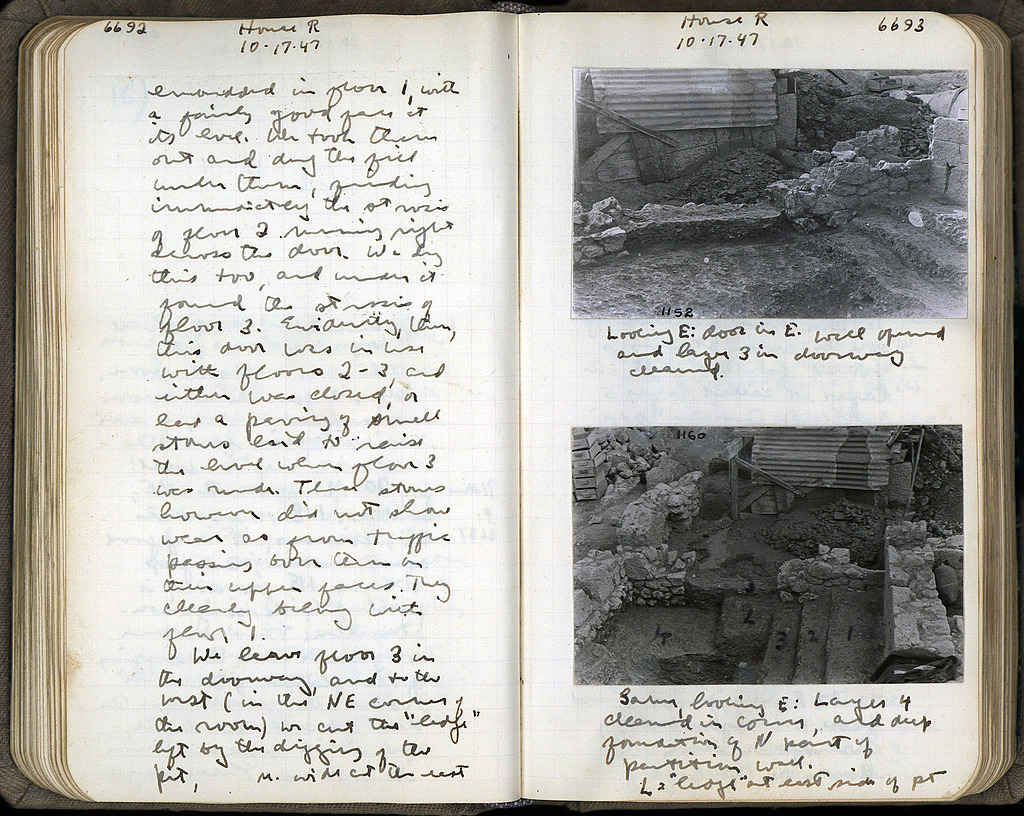 6692
House R
10·17·47
embedded in floor 1, with
a fairly good face at
its level. We took them
out and dug the fill
under them, finding
immediately the strosis
of floor 2 running right
across the door. We dug
this too, and under it
found the strosis of
floor 3. Evidently, then,
this door was in use
with floors 2-3, and
either was closed, or
had a paving of small
stones laid to raise
the level when floor 3
was made. These stones
however did not show
wear as from traffic
passing over them on
their upper faces. They
clearly belong with
floor 1.
We leave floor 3 in
the doorway, and to the
west (in the NE corner of
the room) we cut the "ledge"
left by the digging of the
pit, m. wide at the east
House R
10·17·47
6693
1152
Looking E: door in E. wall opened
and layer 3 in doorway
cleaned.
1160
L
4
3
2
1
Same, looking E: Layer 4
cleaned in corner, and deep
foundation of N part of
partition wall.
L = "ledge" at east side of pit